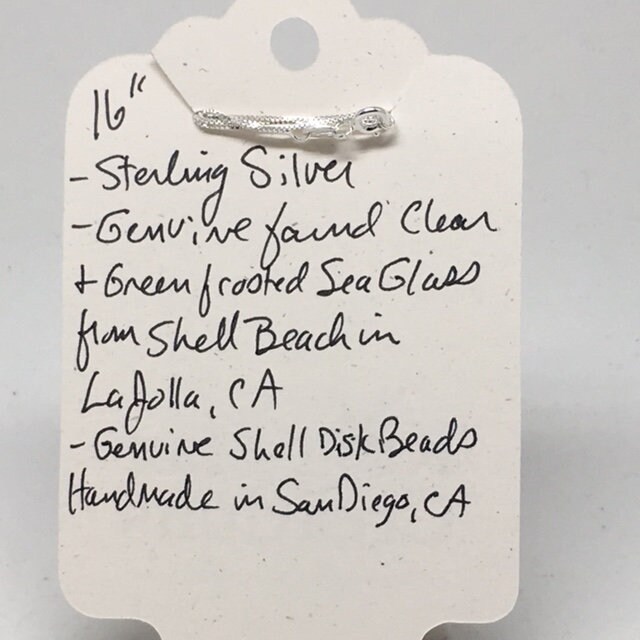 16"
- Sterling Silver
- Genuine found Clear
+ Green frosted Sea Glass
from Shell Beach in
La Jolla, CA
- Genuine Shell Disk Beads
Handmade in San Diego, CA